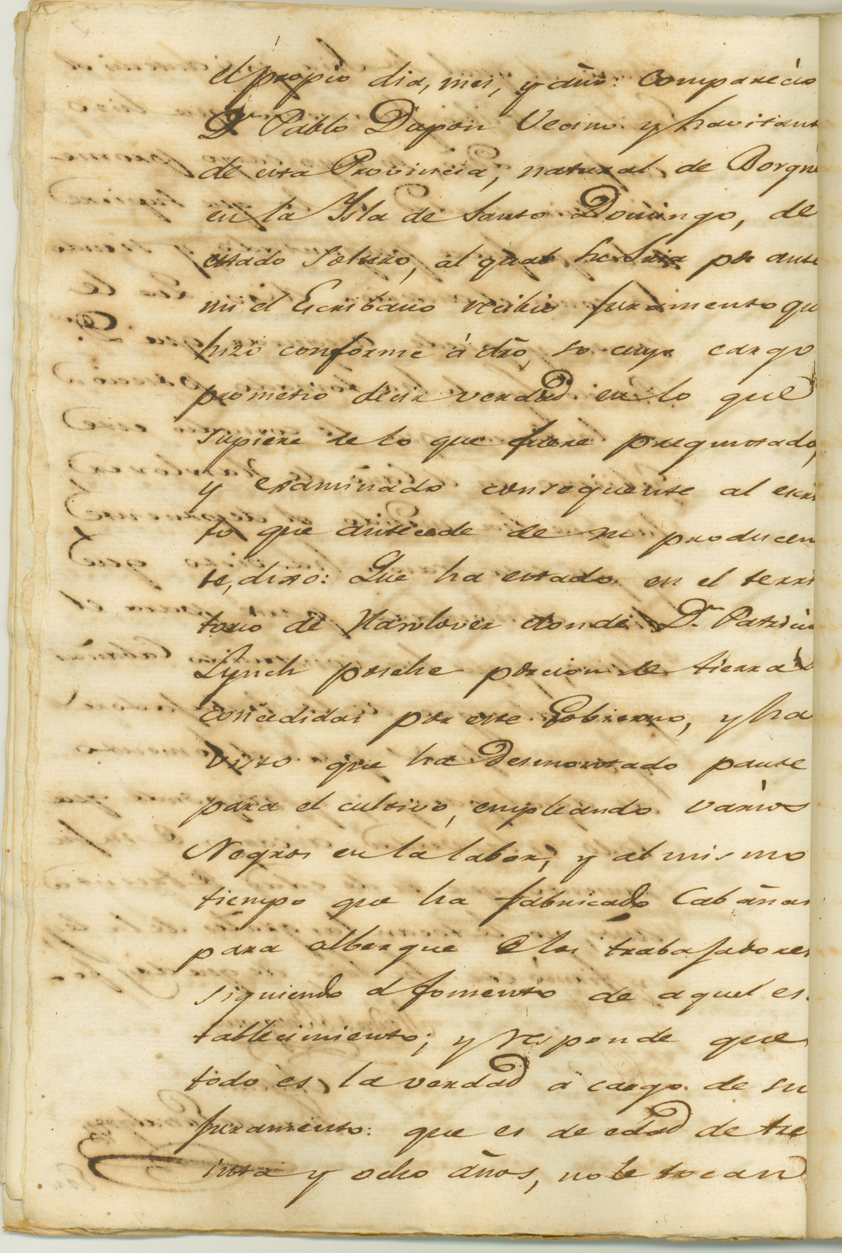 el propio dia, mes, y año: Comparecio
Dn. Pablo Dupon Vecino y havitante
de esta Provincia, natural de Borgne
en la Ysla de Santo Domingo, de
estado Soltero, al qual por ante
mi el Escribano recibió juramento que
hizo conforme á dro, so cuyo cargo
prometio decir verdad en lo que
supiere de lo que fuere preguntado,
y examinado consequente al escri
to que antecede de su producen
te, dixo: Que ha estado en el terri
torio de Hanlover donde Dn. Patricio
Lynch posehe porcion de tierras
concedidas por este Gobierno, y ha
visto que ha Desmontado parte
para el cultivo, empleando varios
Negros en la labor, y al mismo
tiempo que ha fabricado Cabañas
para albergue de los trabajadores
siguiendo el fomento de aquel es.
tablecimiento; y responde que
todo es la verdad á cargo de su
juramento: que es de edad de tre
inta y ocho años, no le tocan